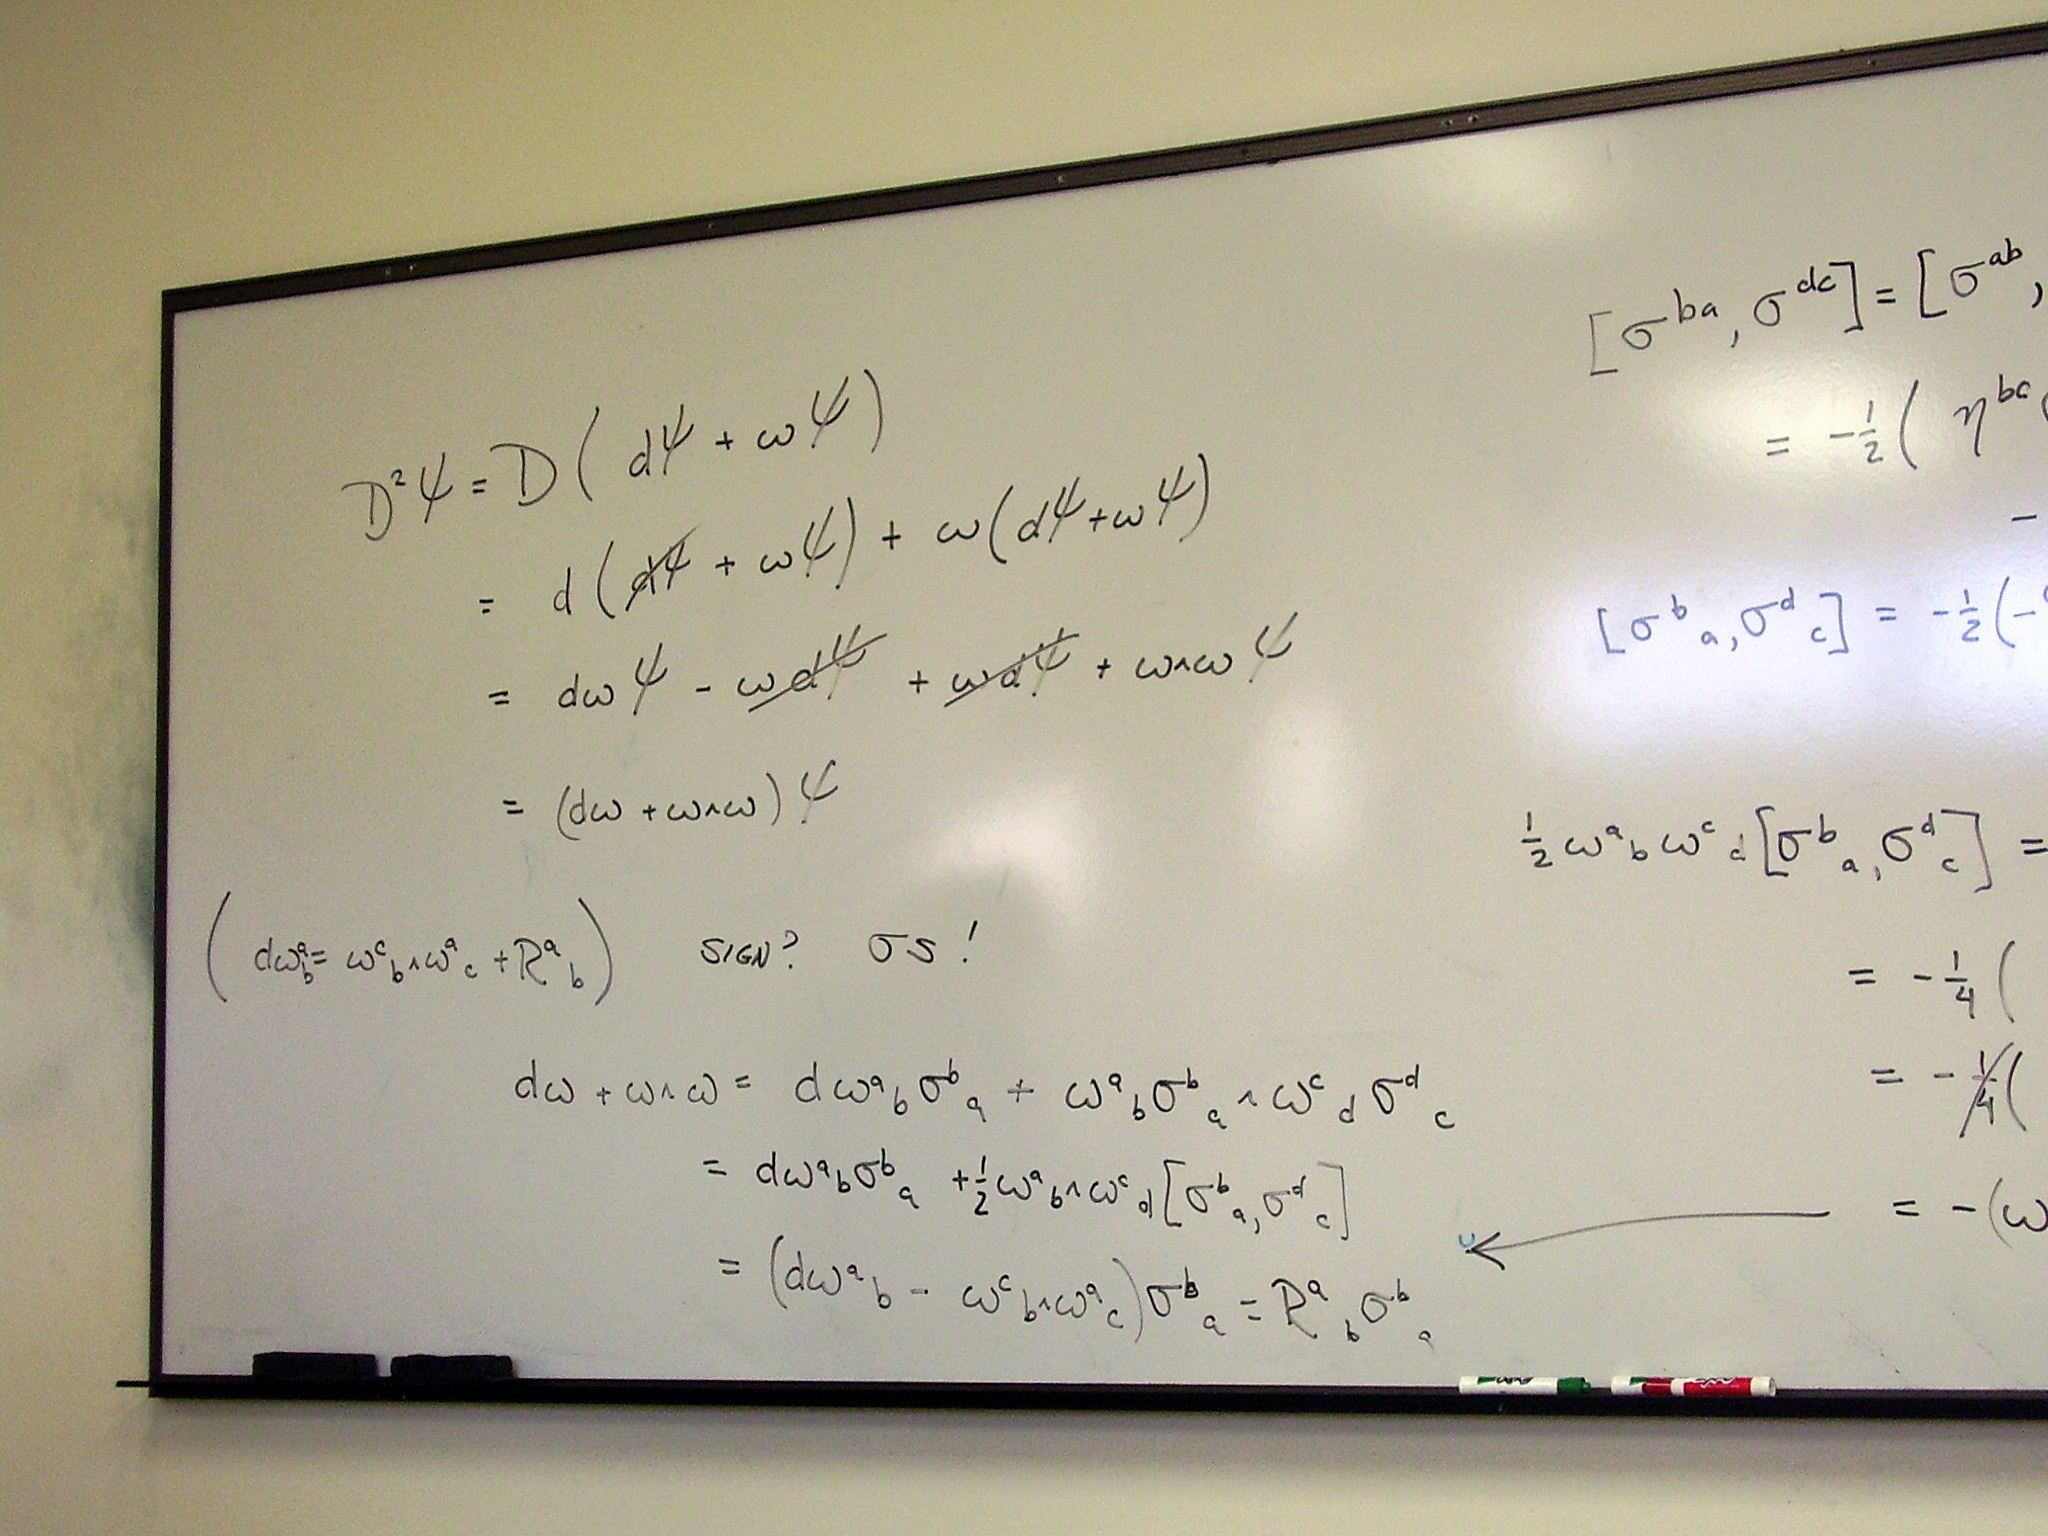 D²ψ = D( dψ + ωψ)
= d(dψ + ωψ) + ω(dψ+ωψ)
= dωψ - ωdψ + ωdψ + ω∧ωψ
= (dω + ω∧ω)ψ
( dω^a_b = ω^c_b∧ω^a_c + R^a_b ) SIGN? σS!
dω + ω∧ω = dω^a_b σ^b_a + ω^a_b σ^b_a ∧ ω^c_d σ^d_c
= dω^a_b σ^b_a + ½ ω^a_b∧ω^c_d [σ^b_a, σ^d_c]
= (dω^a_b - ω^c_b∧ω^a_c) σ^b_a = R^a_b σ^b_a
[σ^ba, σ^dc] = [σ^ab,
= -½( η^bc
-
[σ^b_a, σ^d_c] = -½(-
½ ω^a_b ω^c_d [σ^b_a, σ^d_c] =
= -¼(
= -¼(
= -(ω